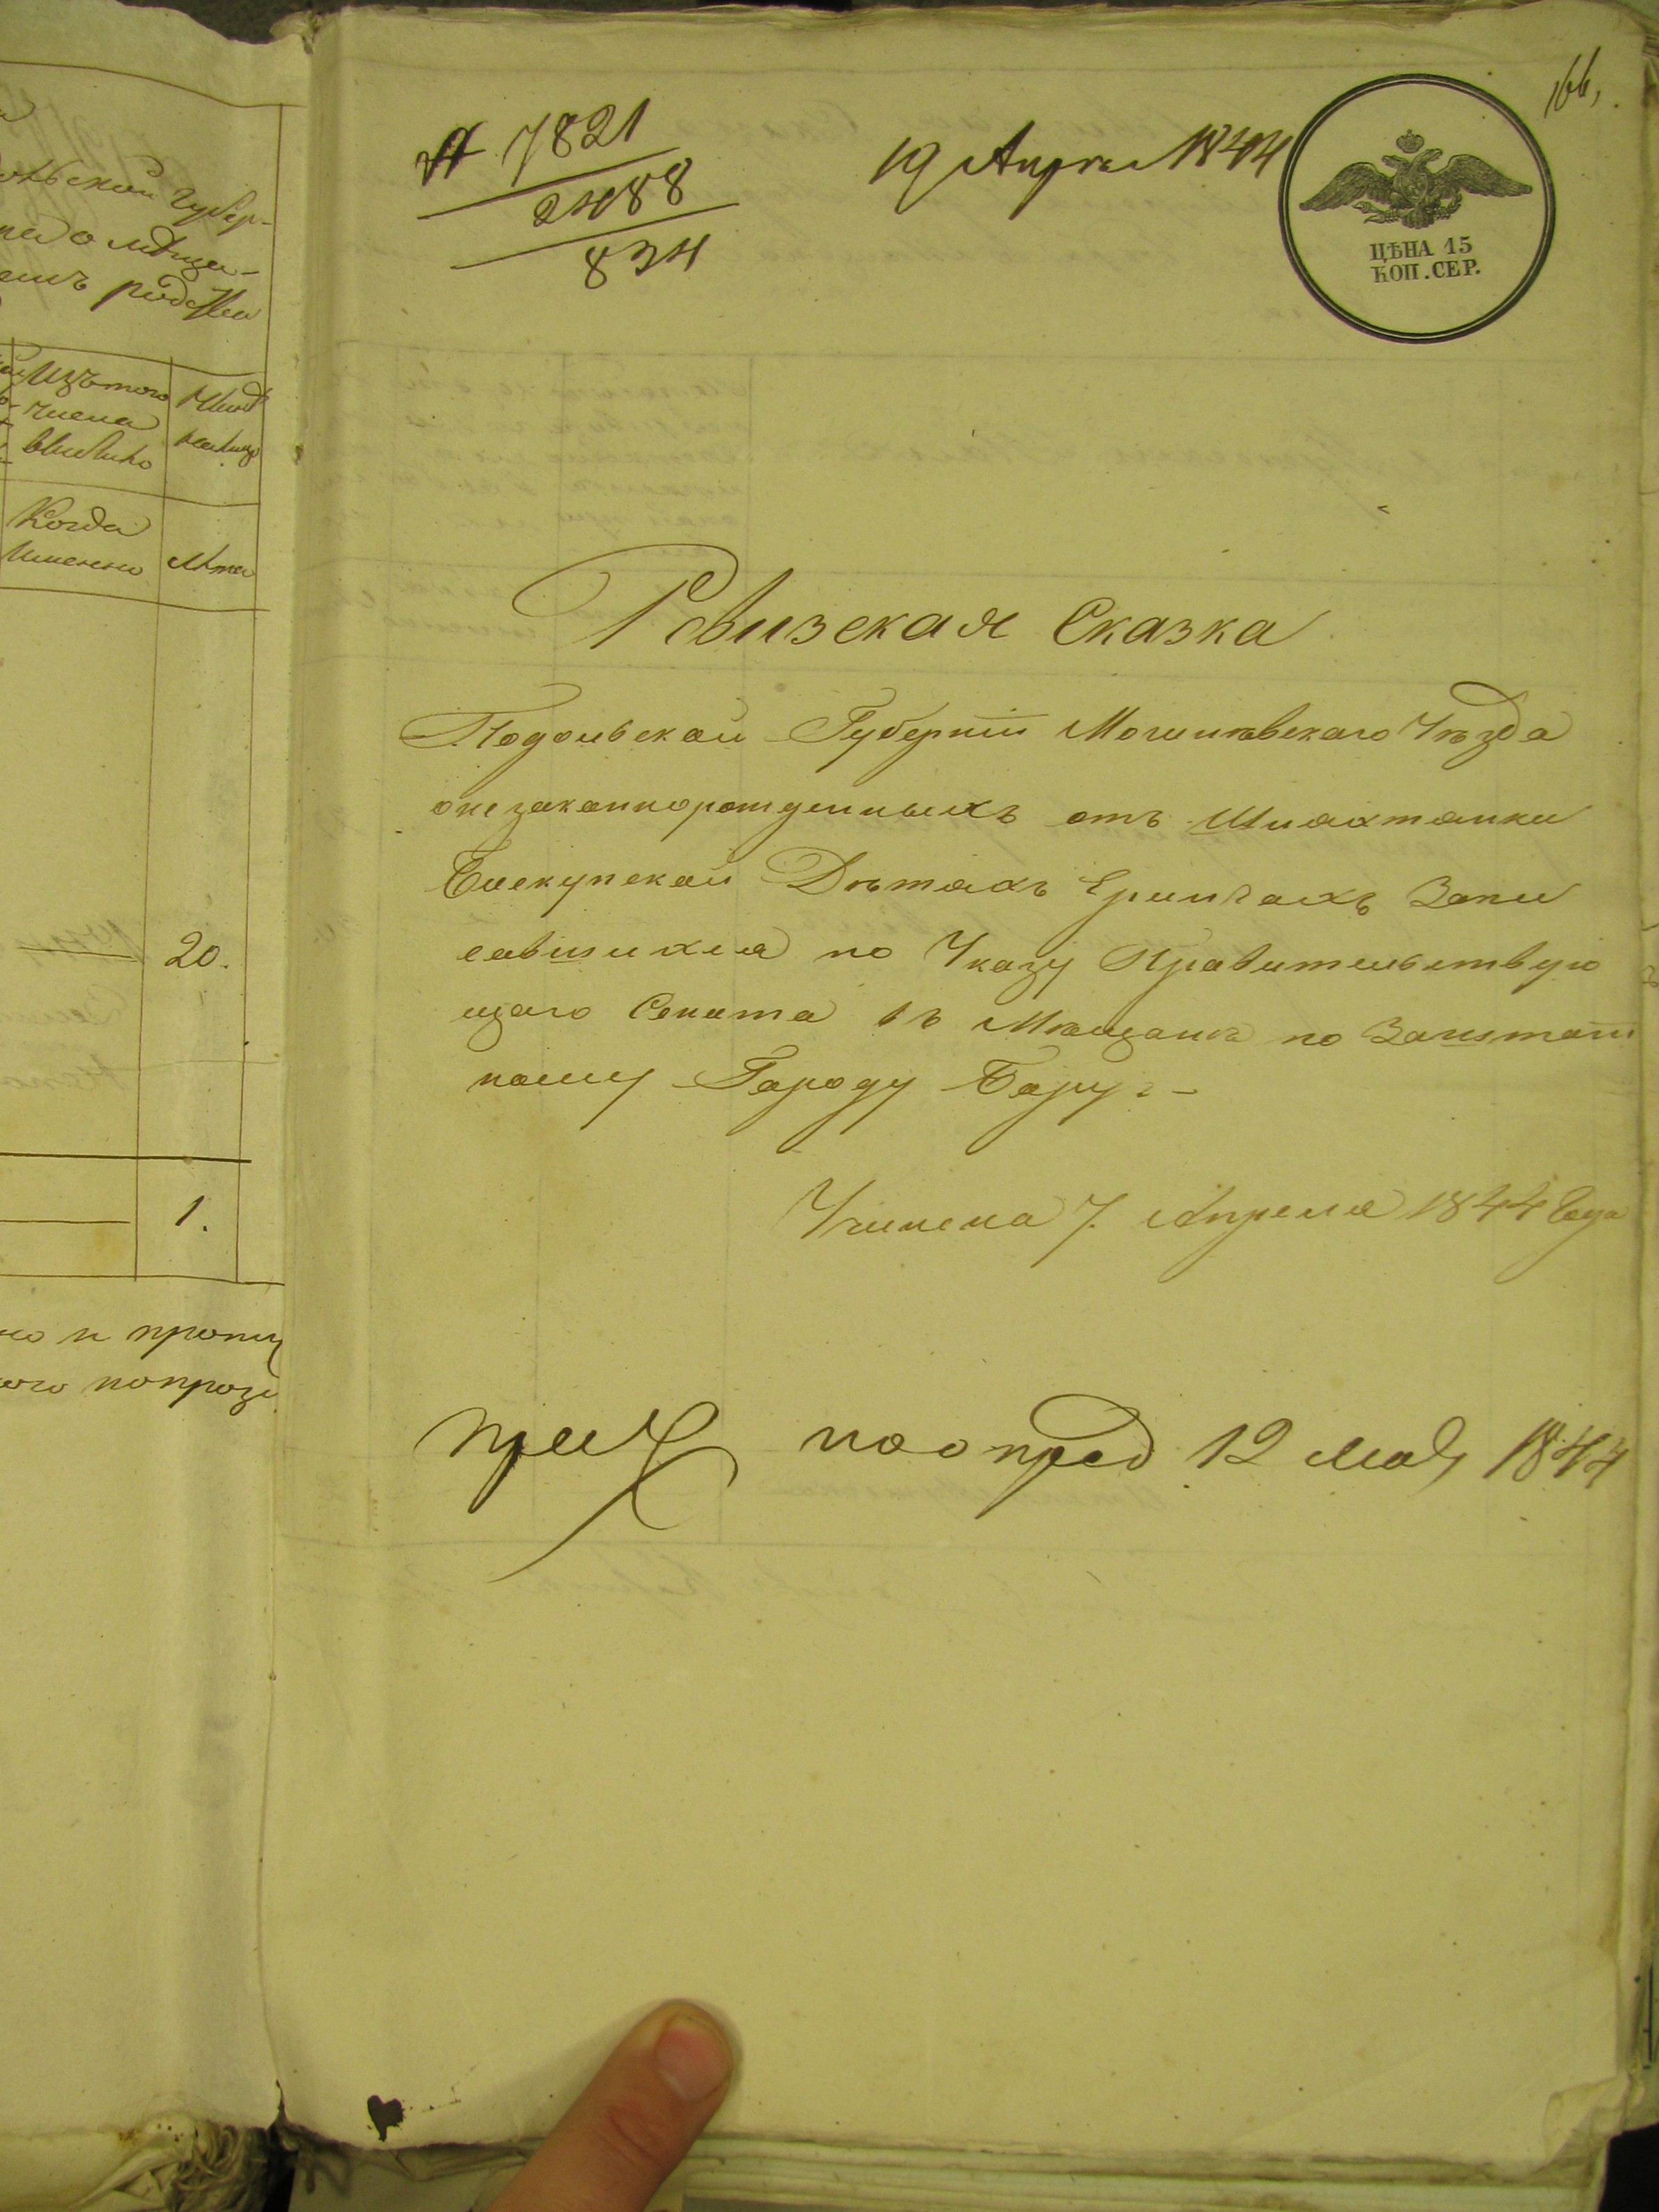 ольской Губер-
ука о мѣща-
родства
Изъ того
числа
выбыло
Когда
именно
лѣта
20.
1.
но и пропу
№ 7821
2488
834
19 Апреля 1844
166.
ЦѢНА 15
КОП. СЕР.
Ревизская Сказка
Подольской Губерніи Могилевскаго Уѣзда
о незаконнорожденныхъ отъ Шляхтянки
Бискупской Дѣтяхъ Запи
савшихся по Указу Правительствую
щаго Сената въ Мѣщане по Заштат
ному Городу Бару
Учинена 7. Апреля 1844 Года
по опред 12 мая 1844